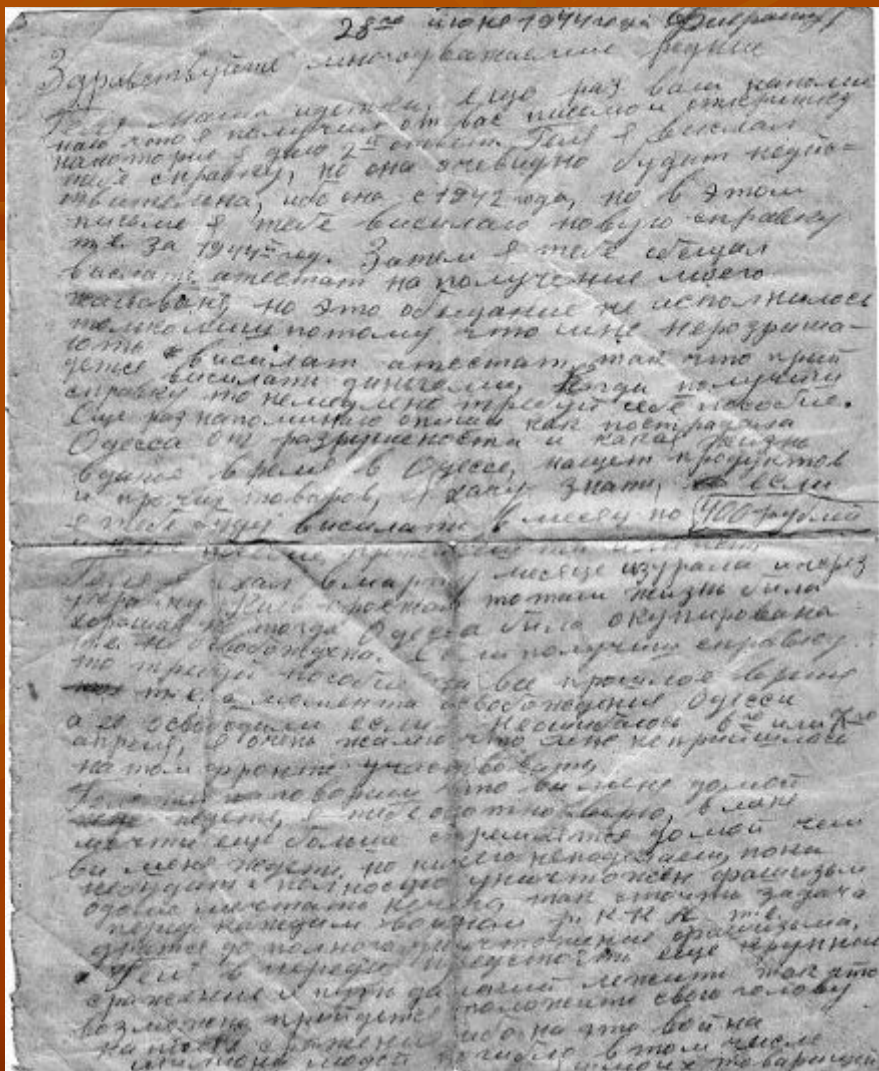 28го июне 1944 года
Здравствуйте многоуважаемие родние
Геля и детки, еще раз вам напоми
наю что я получил от вас писмо и открытку
на которие я дал 2й ответи. Геля я вислал
тебе справку, но она очевидно будит недейс-
твителна, ибо она с 1942 года, но в этом
письме я тебе висилаю новую справку
т.е. за 1944й год. Затем я тебе обещал
вислать атестат на получение моего
но это обещание не исполнилось
потому что мне неразриша-
ють висилат атестат, так что прий
детсе висилати денгами, когда получити
справку то немедлено требуй себе пособие.
Еще раз напоминаю опиши как пострадала
Одесса от и какая жизнь
в даное время в Одессе, нащет продуктов
и прочих товаров, я хачу знати, если
я тебе буду висилати в месяц по 400 рублей
Геля я ехал в марте месяце из урала и через
украину Киев проежал то там жизнь била
хорошая но тогда Одесса била окупирована
т.е. не освобождена. Если получиш справку
то требуй пособие за все прошлое время
т.е. с момента освобождения Одесси
а ее освободили если неошибаюсь или
апреля, я очень жалею что мне неприйшлось
на том фронте участвовать
Геля ти говориш что ви мене домой
ждете, я тебе охотно верю, в мене
мечти еще болше стремятсе домой чем
ви мене ждети, но ничего неподелаеш, пока
небудит полностю уничтожен фашизм
о доме мечтать нечего, так стоить задача
перед каждим воином Р.К.К.А. т.е.
дратся до полного уничтожения фашизьма,
Геля в переди предстоить еще крупное
сражение и путь далекий лежить так что
возможно прийдется положить свою голову
на поле сражения ибо на это война
милиони людей погибло в том числе
моих товарищей